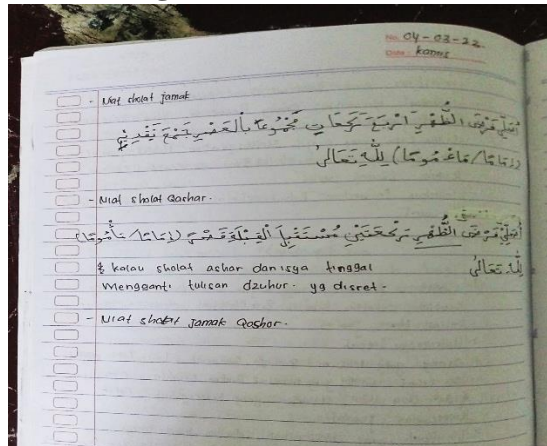 No. 04-03-22
Date: kamis
- Niat sholat jamak
أُصَلِّي فَرْضَ الظُّهْرِ أَرْبَعَ رَكَعَاتٍ مَجْمُوعًا بِالْعَصْرِ جَمْعَ تَقْدِيْمٍ
(إِمَامًا/مَأْمُومًا) لِلَّهِ تَعَالَى
- Niat sholat Qashar.
أُصَلِّي فَرْضَ الظُّهْرِ رَكْعَتَيْنِ مُسْتَقْبِلَ الْقِبْلَةِ قَصْرً (إِمَامًا/مَأْمُومًا)
لِلَّهِ تَعَالَى
kalau sholat ashar dan isya tinggal
mengganti tulisan dzuhur. yg disret-
- Niat sholat jamak Qoshor.